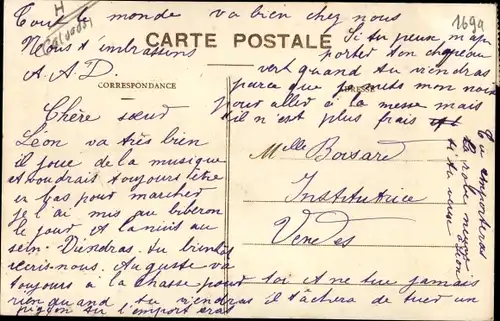 Tout le monde va bien chez nous
Nous t'embrassons
A. A. D.
H
1699
CARTE POSTALE
CORRESPONDANCE
ADRESSE
Si tu peux m'ap
porter ton chapeau
vert quand tu viendras
parce que je mon noir
pour aller à la messe mais
il n'est plus frais
Chère sœur
Léon va très bien
il joue de la musique
et voudrais toujours être
en bas pour marcher
je l'ai mis au biberon
le jour et la nuit au
sein. Viendras tu bientôt
écris-nous. Auguste va
toujours à la chasse pour toi et ne tue jamais
rien quand tu viendras il tâchera de tuer un
pigeon tu l'emporteras
Melle Boisard
Institutrice
Vendes
Tu emporteras
la robe
si tu veux